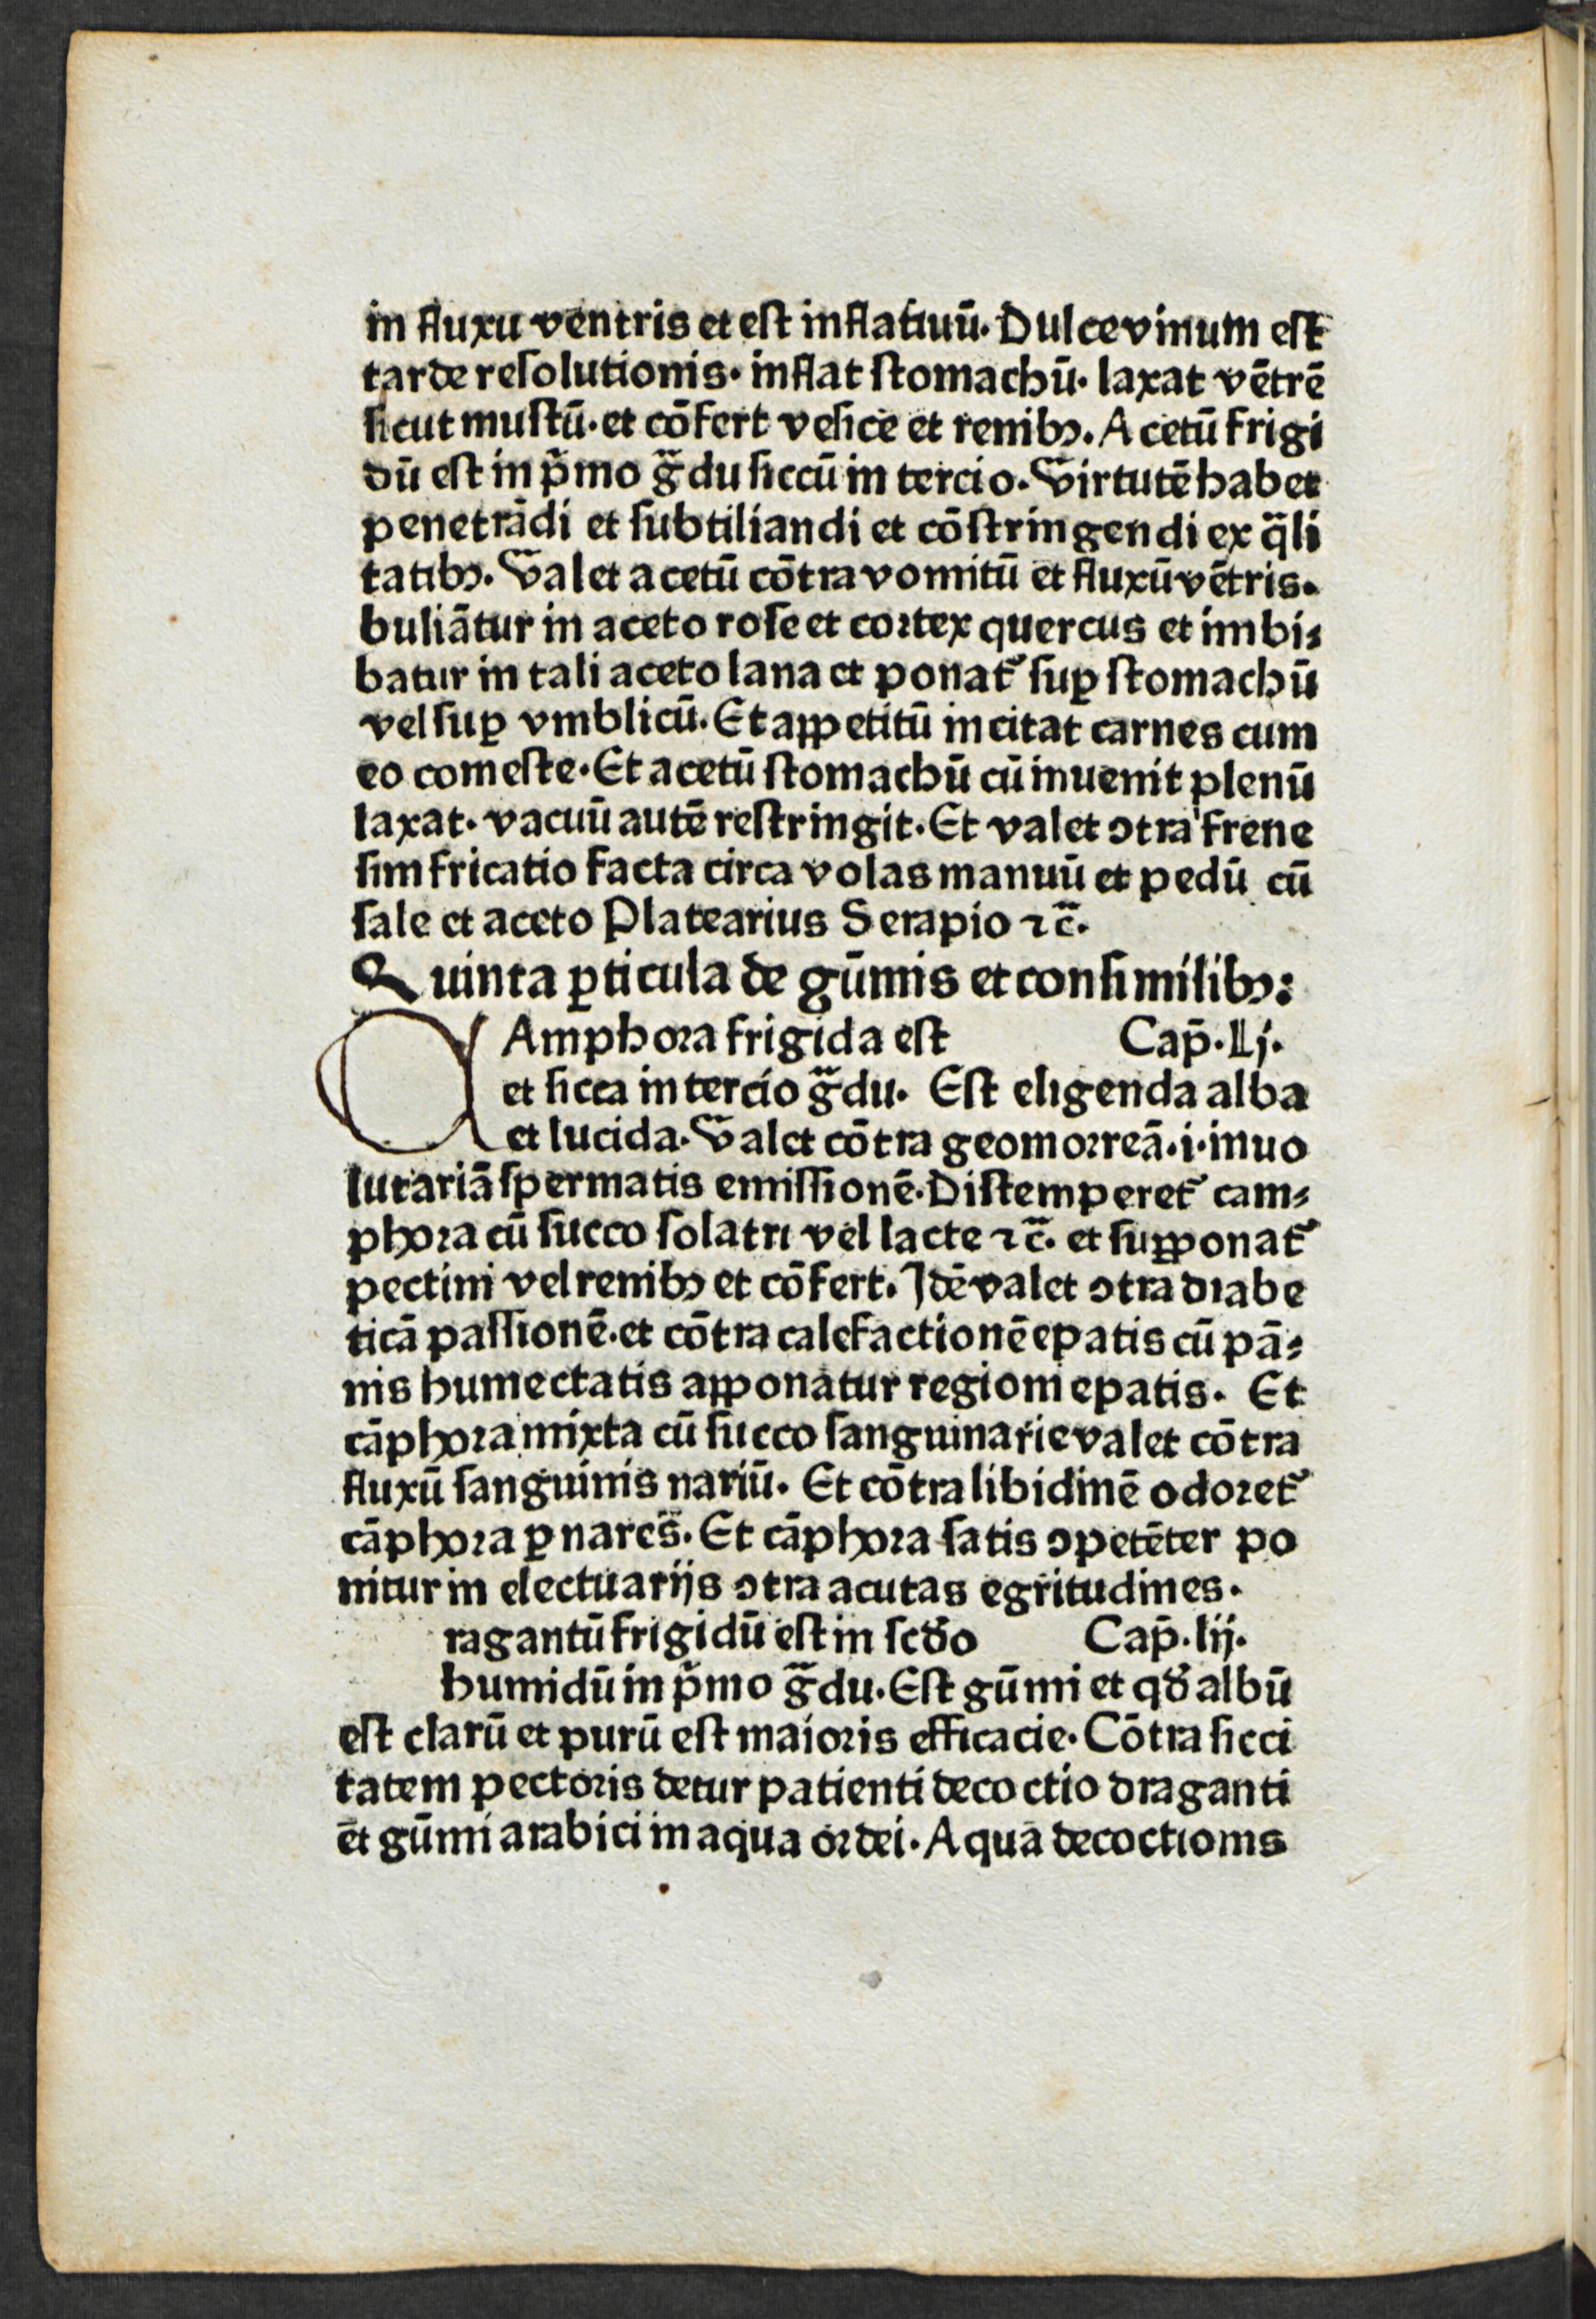 in fluxu ventris et est inflatiuū. Dulce vinum est
tarde resolutionis. inflat stomachū. laxat vētrē
sicut mustū. et cōfert vesice et renibꝫ. Acetū frigi
dū est in p̄mo g̃du siccū in tercio. Virtutē habet
penetrādi et subtiliandi et cōstringendi ex q̃li
tatibꝫ. Valet acetū cōtra vomitū et fluxū vētris.
buliātur in aceto rose et cortex quercus et imbi⸗
batur in tali aceto lana et ponat᷑ suꝑ stomachū
vel suꝑ vmblicū. Et aꝑpetitū incitat carnes cum
eo comeste. Et acetū stomachū cū inuenit plenū
laxat. vacuū autē restringit. Et valet ↄtra frene
sim fricatio facta circa volas manuū et pedū cū
sale et aceto Platearius Serapio ⁊c̃.
Quinta ꝑticula de gūmis et consimilibꝫ:
CAmphora frigida est Cap̄. Lj.
et sicca in tercio g̃du. Est eligenda alba
et lucida. Valet cōtra geomorreā .i. inuo
lutariā spermatis emissionē. Distemperet᷑ cam⸗
phora cū succo solatri vel lacte ⁊c̃. et supponat᷑
pectini vel renibꝫ et cōfert. Idē valet ↄtra diabe
ticā passionē. et cōtra calefactionē epatis cū pā⸗
nis humectatis apponatur regioni epatis. Et
cāphora mixta cū succo sanguinarie valet cōtra
fluxū sanguinis nariū. Et cōtra libidinē odoret᷑
cāphora ꝑ nares. Et cāphora satis ↄpetēter po
nitur in electuarijs ↄtra acutas egritudines.
ragantū frigidū est in scd̓o Cap̄. lij.
humidū in p̄mo g̃du. Est gūmi et qd̓ albū
est clarū et purū est maioris efficacie. Cōtra sicci
tatem pectoris detur patienti decoctio draganti
et gūmi arabici in aqua ordei. Aqua decoctionis